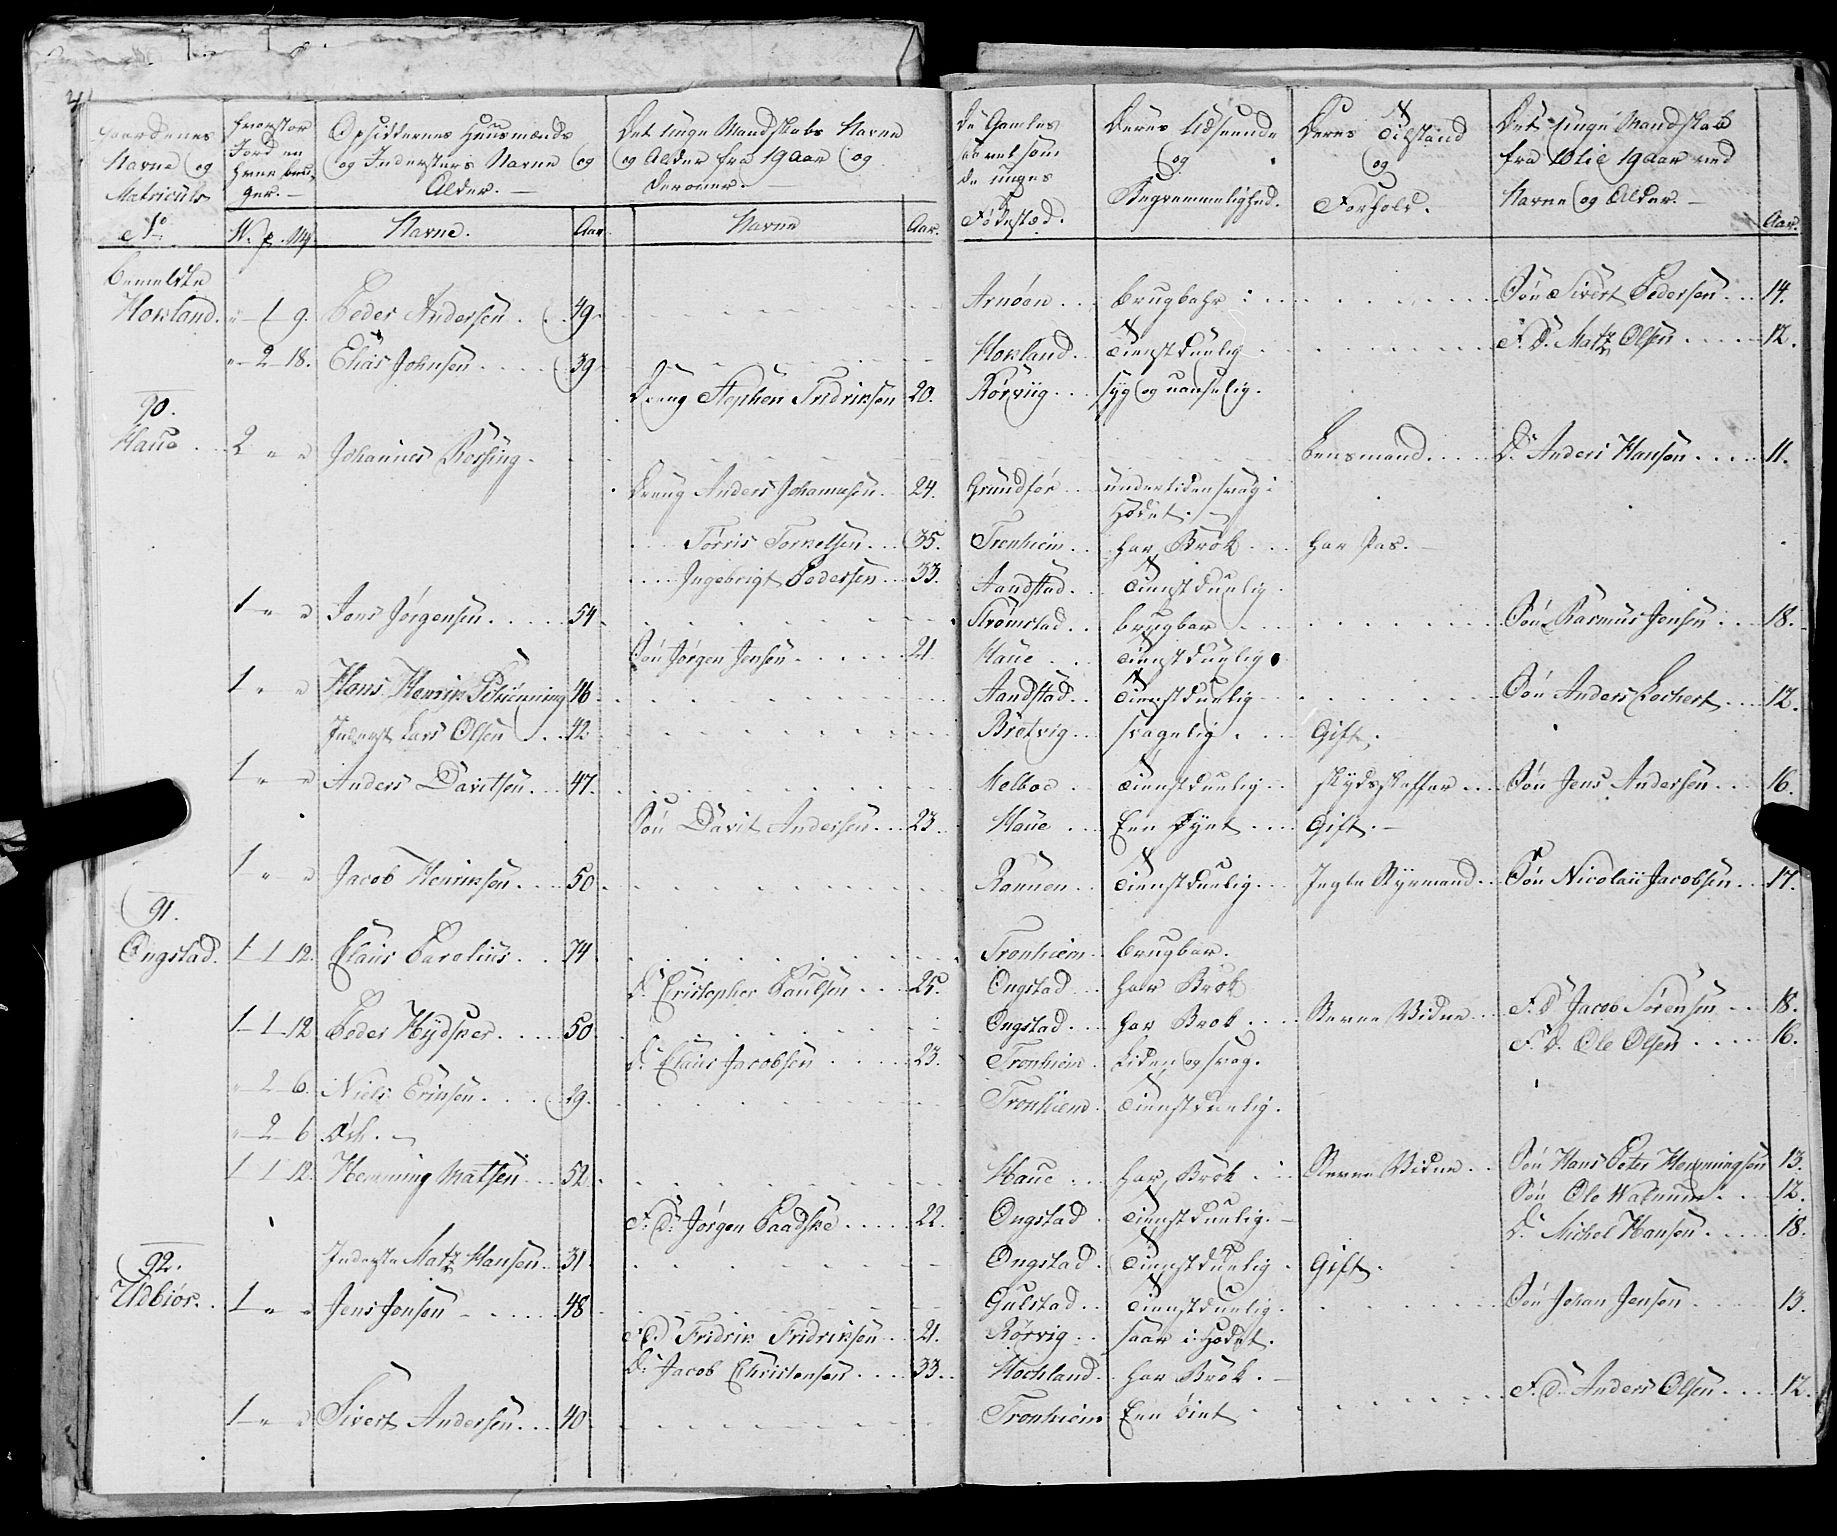 Gaardenes Navne og Matriculs No
Hvorstor Jord en Hver bruger. W. p. Mk
Opsiddernes Huusmænds og Indersters Navne og Alder. — Navne. Aar
Det unge Mandskabs Navne og Alder fra 19 Aar og derover. — Navne Aar.
De Gamles saavel som de unges Fødested.
Deres Udseende og Begvemmelighed.
Deres Tilstand og Forhold.
Det unge Mandskab fra 10 til 19 Aar ved Navne og Alder. — Aar.
bemeldte
Hokland. " 1 9. Peder Andersen 49. Arnøen brugbahr Søn Sivert Pedersen 14.
" 2 18. Elias Johnsen 39 Hokland tienstdyglig F. D. Matz Olsen 12.
Dreng Stephen Fridriksen 20. Rørviig syg og uanselig.
90.
Haue 2 " " Johannes Røssing Lensmand D. Anders Hansen 11.
Dreng Anders Johannesen 24. Grundfør undertiden svag i
Hodet.
Torris Torkelsen 35. Tronhiem har Brok har Pas. —
Ingebrigt Pedersen 33. Aandstad tienstdyglig
1 " " Jens Jørgensen 54 Strømstad brugbar Søn Rasmus Jensen 18.
Søn Jørgen Jensen 21 Haue tienstdyglig
1 " " Hans Henrik Schiønning 46 Aandstad tienstdyglig Søn Anders Lochert 12.
Inderst Lars Olsen 42 Bretvig svagelig Gift.
1 " " Anders Davitsen 47. Melboe tienstdyglig skydsskaffer Søn Jens Andersen 16.
Søn Davit Andersen 23 Haue Een Øynt Gift. —
1 " " Jacob Henriksen 50 Rannen tienstdyglig Jegte Styrmand Søn Nicolaii Jacobsen 17.
91.
Ongstad. 1 1 12. Claus Carolius 74 Tronhiem brugbar.
D. Cristopher Paulsen 25. Ongstad har Brok
1 1 12 Peder Hydsker 50 Ongstad har Brok Stevne Vidne F. D. Jacob Sørensen 18.
D. Claus Jacobsen 23. Tronhiem Liden og svag. F. D. Ole Olsen 16.
" 2 6. Niels Eriksen 29. Tronhiem tienstdyglig.
" 2 6 Øde. —
1 1 12. Hemming Matsen 52 Haue har Brok Stevne Vidne Søn Hans Peter Hemmingsen 13.
Søn Ole Watnum 12.
F. D. Jørgen Baadske 22. Ongstad tienstdyglig. — D. Michel Hansen 18.
Inderste Matz Hansen 31 Ongstad tienstdyglig Gift.
92.
Udbiør. 1 " " Jens Jensen 48 Gulstad tienstdyglig Søn Johan Jensen 13.
F. D. Fridrik Fridriksen 21. Rørvig saar i Hodet.
D. Jacob Christensen 33. Hochland har Brok. —
1 " " Sivert Andersen 40 Tronhiem Een Øiet F. D. Anders Olsen 12.